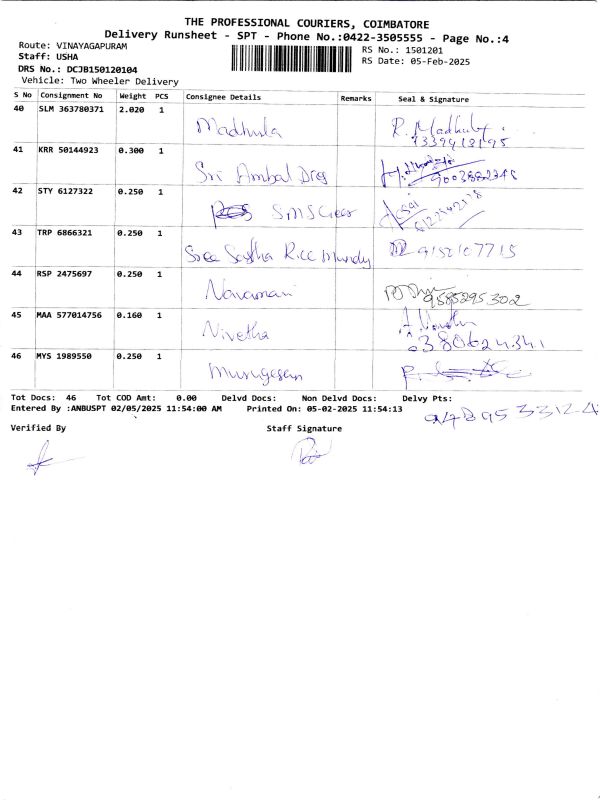 THE PROFESSIONAL COURIERS, COIMBATORE
Delivery Runsheet - SPT - Phone No.:0422-3505555 - Page No.:4
Route: VINAYAGAPURAM
RS No.: 1501201
Staff: USHA
RS Date: 05-Feb-2025
DRS No.: DCJB150120104
Vehicle: Two Wheeler Delivery
S No Consignment No Weight PCS Consignee Details Remarks Seal & Signature
40 SLM 363780371 2.020 1 Madhula R. Madhu
41 KRR 50144923 0.300 1 Sri Ambal
42 STY 6127322 0.250 1 SMS
43 TRP 6866321 0.250 1 Sree Sastha Rice Mundy 9152107715
44 RSP 2475697 0.250 1 Navamani 9585295302
45 MAA 577014756 0.160 1 Nivetha
46 MYS 1989550 0.250 1 Murugesan
Tot Docs: 46 Tot COD Amt: 0.00 Delvd Docs: Non Delvd Docs: Delvy Pts:
Entered By :ANBUSPT 02/05/2025 11:54:00 AM Printed On: 05-02-2025 11:54:13
Verified By Staff Signature